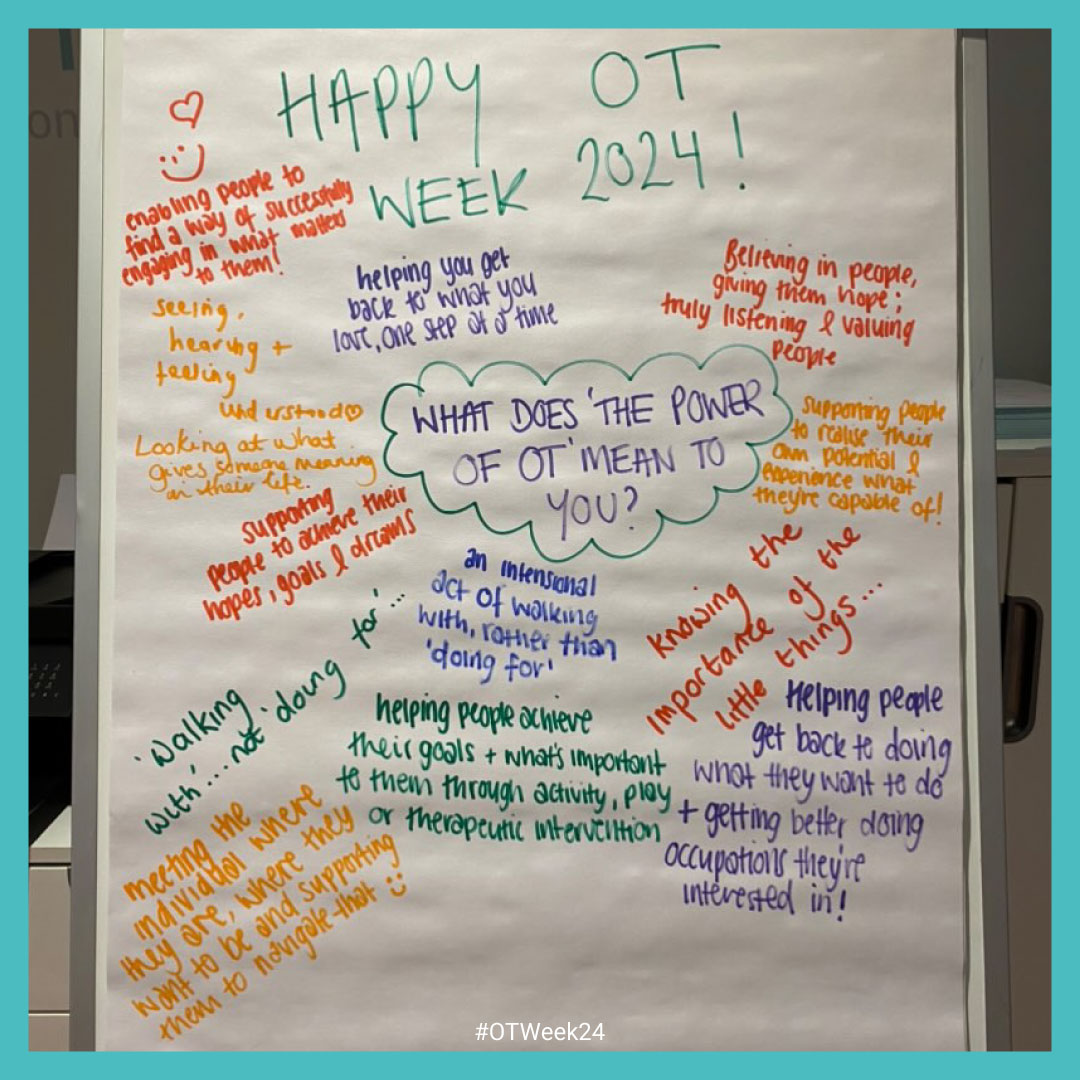 HAPPY OT
WEEK 2024!
enabling people to
find a way of successfully
engaging in what matters
to them!
helping you get
back to what you
love, one step at a time
Believing in people,
giving them hope;
truly listening & valuing
people
seeing,
hearing +
feeling
understood
Looking at what
gives someone meaning
in their life.
WHAT DOES 'THE POWER
OF OT' MEAN TO
YOU?
supporting people
to realise their
own potential &
experience what
they're capable of!
supporting
people to achieve their
hopes, goals & dreams
an intensional
act of walking
with, rather than
'doing for'
knowing the
importance of the
little things...
'walking
with'... not 'doing for'...
helping people achieve
their goals + what's important
to them through activity, play
or therapeutic intervention
Helping people
get back to doing
what they want to do
+ getting better doing
occupations they're
interested in!
meeting the
individual where
they are, where they
want to be and supporting
them to navigate that
#OTWeek24
on